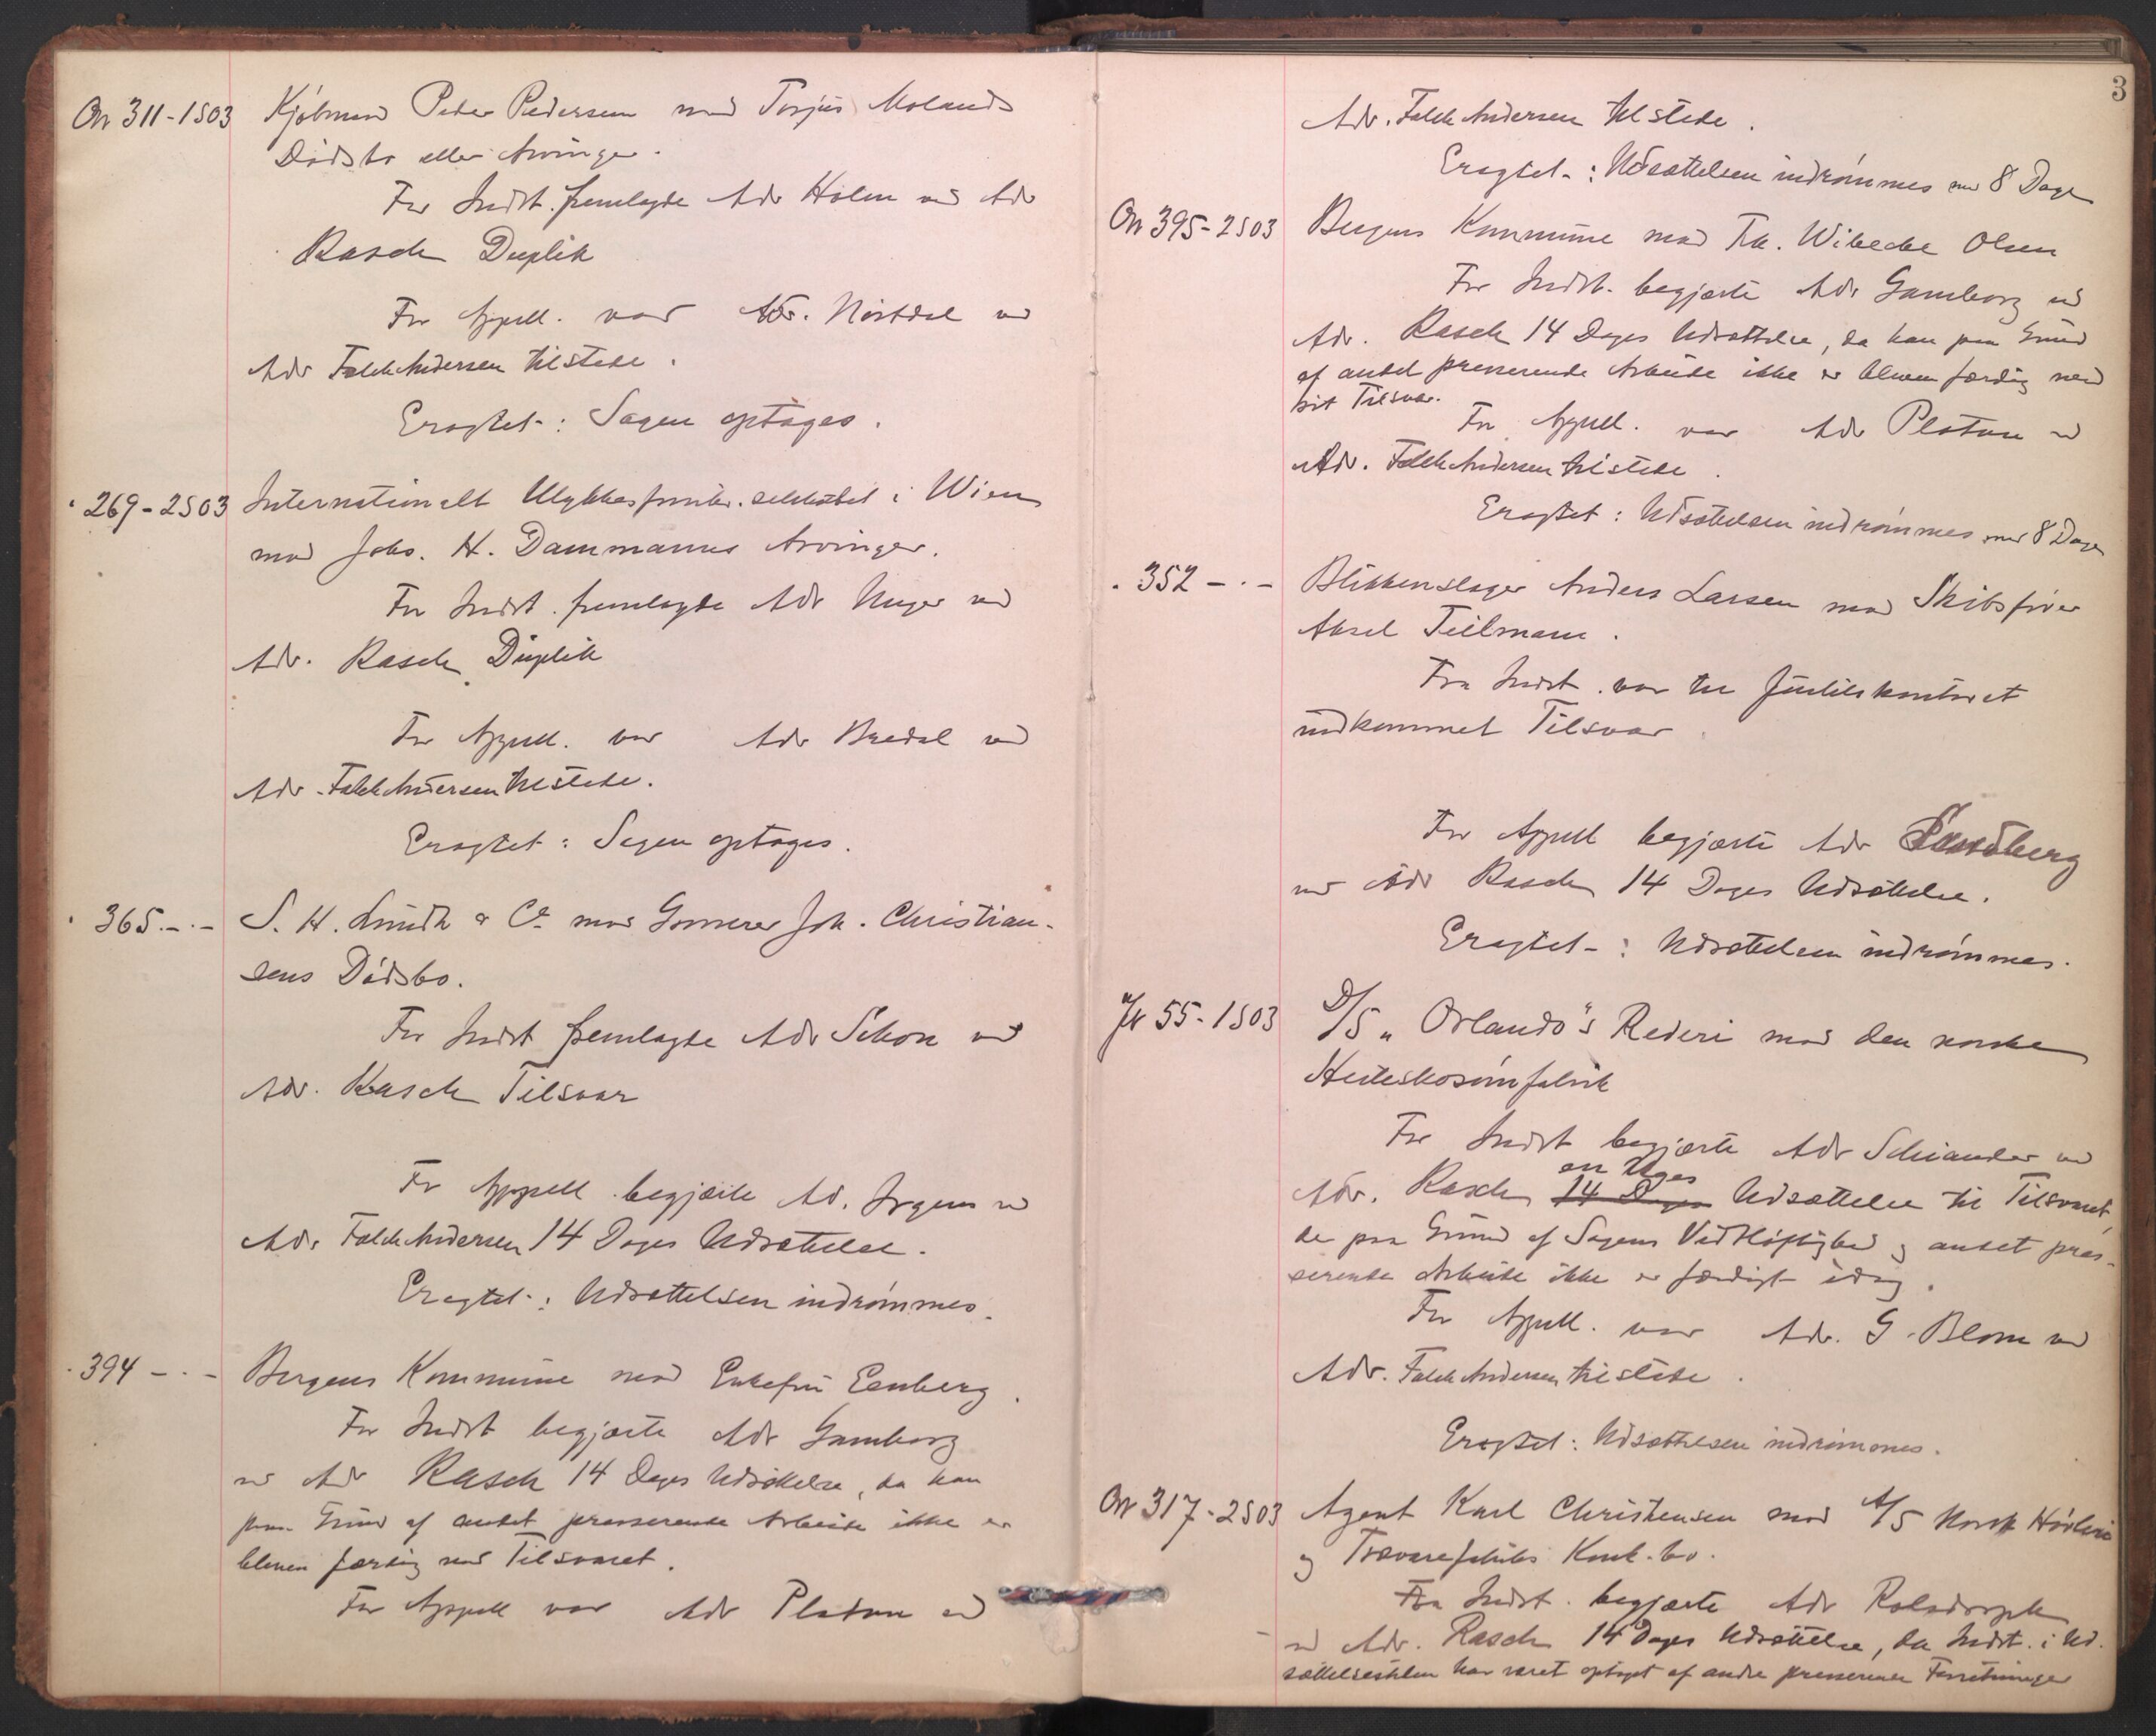 On 311-1S03 Kjøbmand Peter Pedersen mod Torjus Molands
Dødsbo eller Arvinger.
For Indst. fremlagde Adv Holm ved Adv
Rasch Duplik
For Appell. var Adv. Nørstdal ved
Adv Falck Andersen tilstede.
Eragtet: Sagen optages.
" 269-2S03 Internationalt Ulykkesforsikr. selskabet i Wien
mod Johs. H. Dammanns Arvinger.
For Indst. fremlagde Adv Unger ved
Adv. Rasch Duplik
For Appell. var Adv Bredal ved
Adv. Falck Andersen tilstede.
Eragtet: Sagen optages.
" 365 - " - S. H. Lundh & Co mod Grosserer Joh. Christian-
sens Dødsbo.
For Indst fremlagde Adv Schou ved
Adv. Rasch Tilsvar
For Appell. begjærte Ad. Irgens ved
Adv Falck Andersen 14 Dages Udsættelse.
Eragtet: Udsættelsen indrømmes.
" 394 - " - Bergens Kommune mod Enkefru Eenberg.
For Indst begjærte Adv Gamborg
ved Adv Rasch 14 Dages Udsættelse, da han
paa Grund af andet presserende Arbeide ikke er
bleven færdig med Tilsvaret.
For Appell var Adv Platou ved
3
Adv. Falck Andersen tilstede.
Eragtet: Udsættelsen indrømmes med 8 Dage
On 395-2S03 Bergens Kommune mod Fru. Wibecke Olsen
For Indst. begjærte Adv Gamborg ved
Adv. Rasch 14 Dages Udsættelse, da han paa Grund
af andet presserende Arbeide ikke er bleven færdig med
sit Tilsvar.
For Appell. var Adv Platou ved
Adv. Falck Andersen tilstede.
Eragtet: Udsættelsen indrømmes med 8 Dage
" 352 - " - Blikkenslager Anders Larsen mod Skibsfører
Aksel Teilmann.
Fra Indst. var til Justitskontoret
indkommet Tilsvar.
For Appell begjærte Adv Sandberg
ved Adv Rasch 14 Dages Udsættelse.
Eragtet: Udsættelsen indrømmes.
55-1S03 D/S "Orlando"s Rederi mod den norske
Hesteskosømfabrik
For Indst begjærte Adv Schiander ved
en Uges
Adv. Rasch 14 Dages Udsættelse til Tilsvaret,
da paa Grund af Sagens Vidtløftighed og andet pres-
serende Arbeide ikke er færdigt idag.
For Appell. var Adv. G. Blom ved
Adv. Falck Andersen tilstede.
Eragtet: Udsættelsen indrømmes.
On 317-2S03 Agent Karl Christensen mod A/S Norsk Høvleri
og Trævarefabriks Konk.bo.
For Indst. begjærte Adv Rolsdorph
ved Adv. Rasch 14 Dages Udsættelse, da Indst. i Ud-
sættelsestiden har været optaget af andre presserende Forretninger